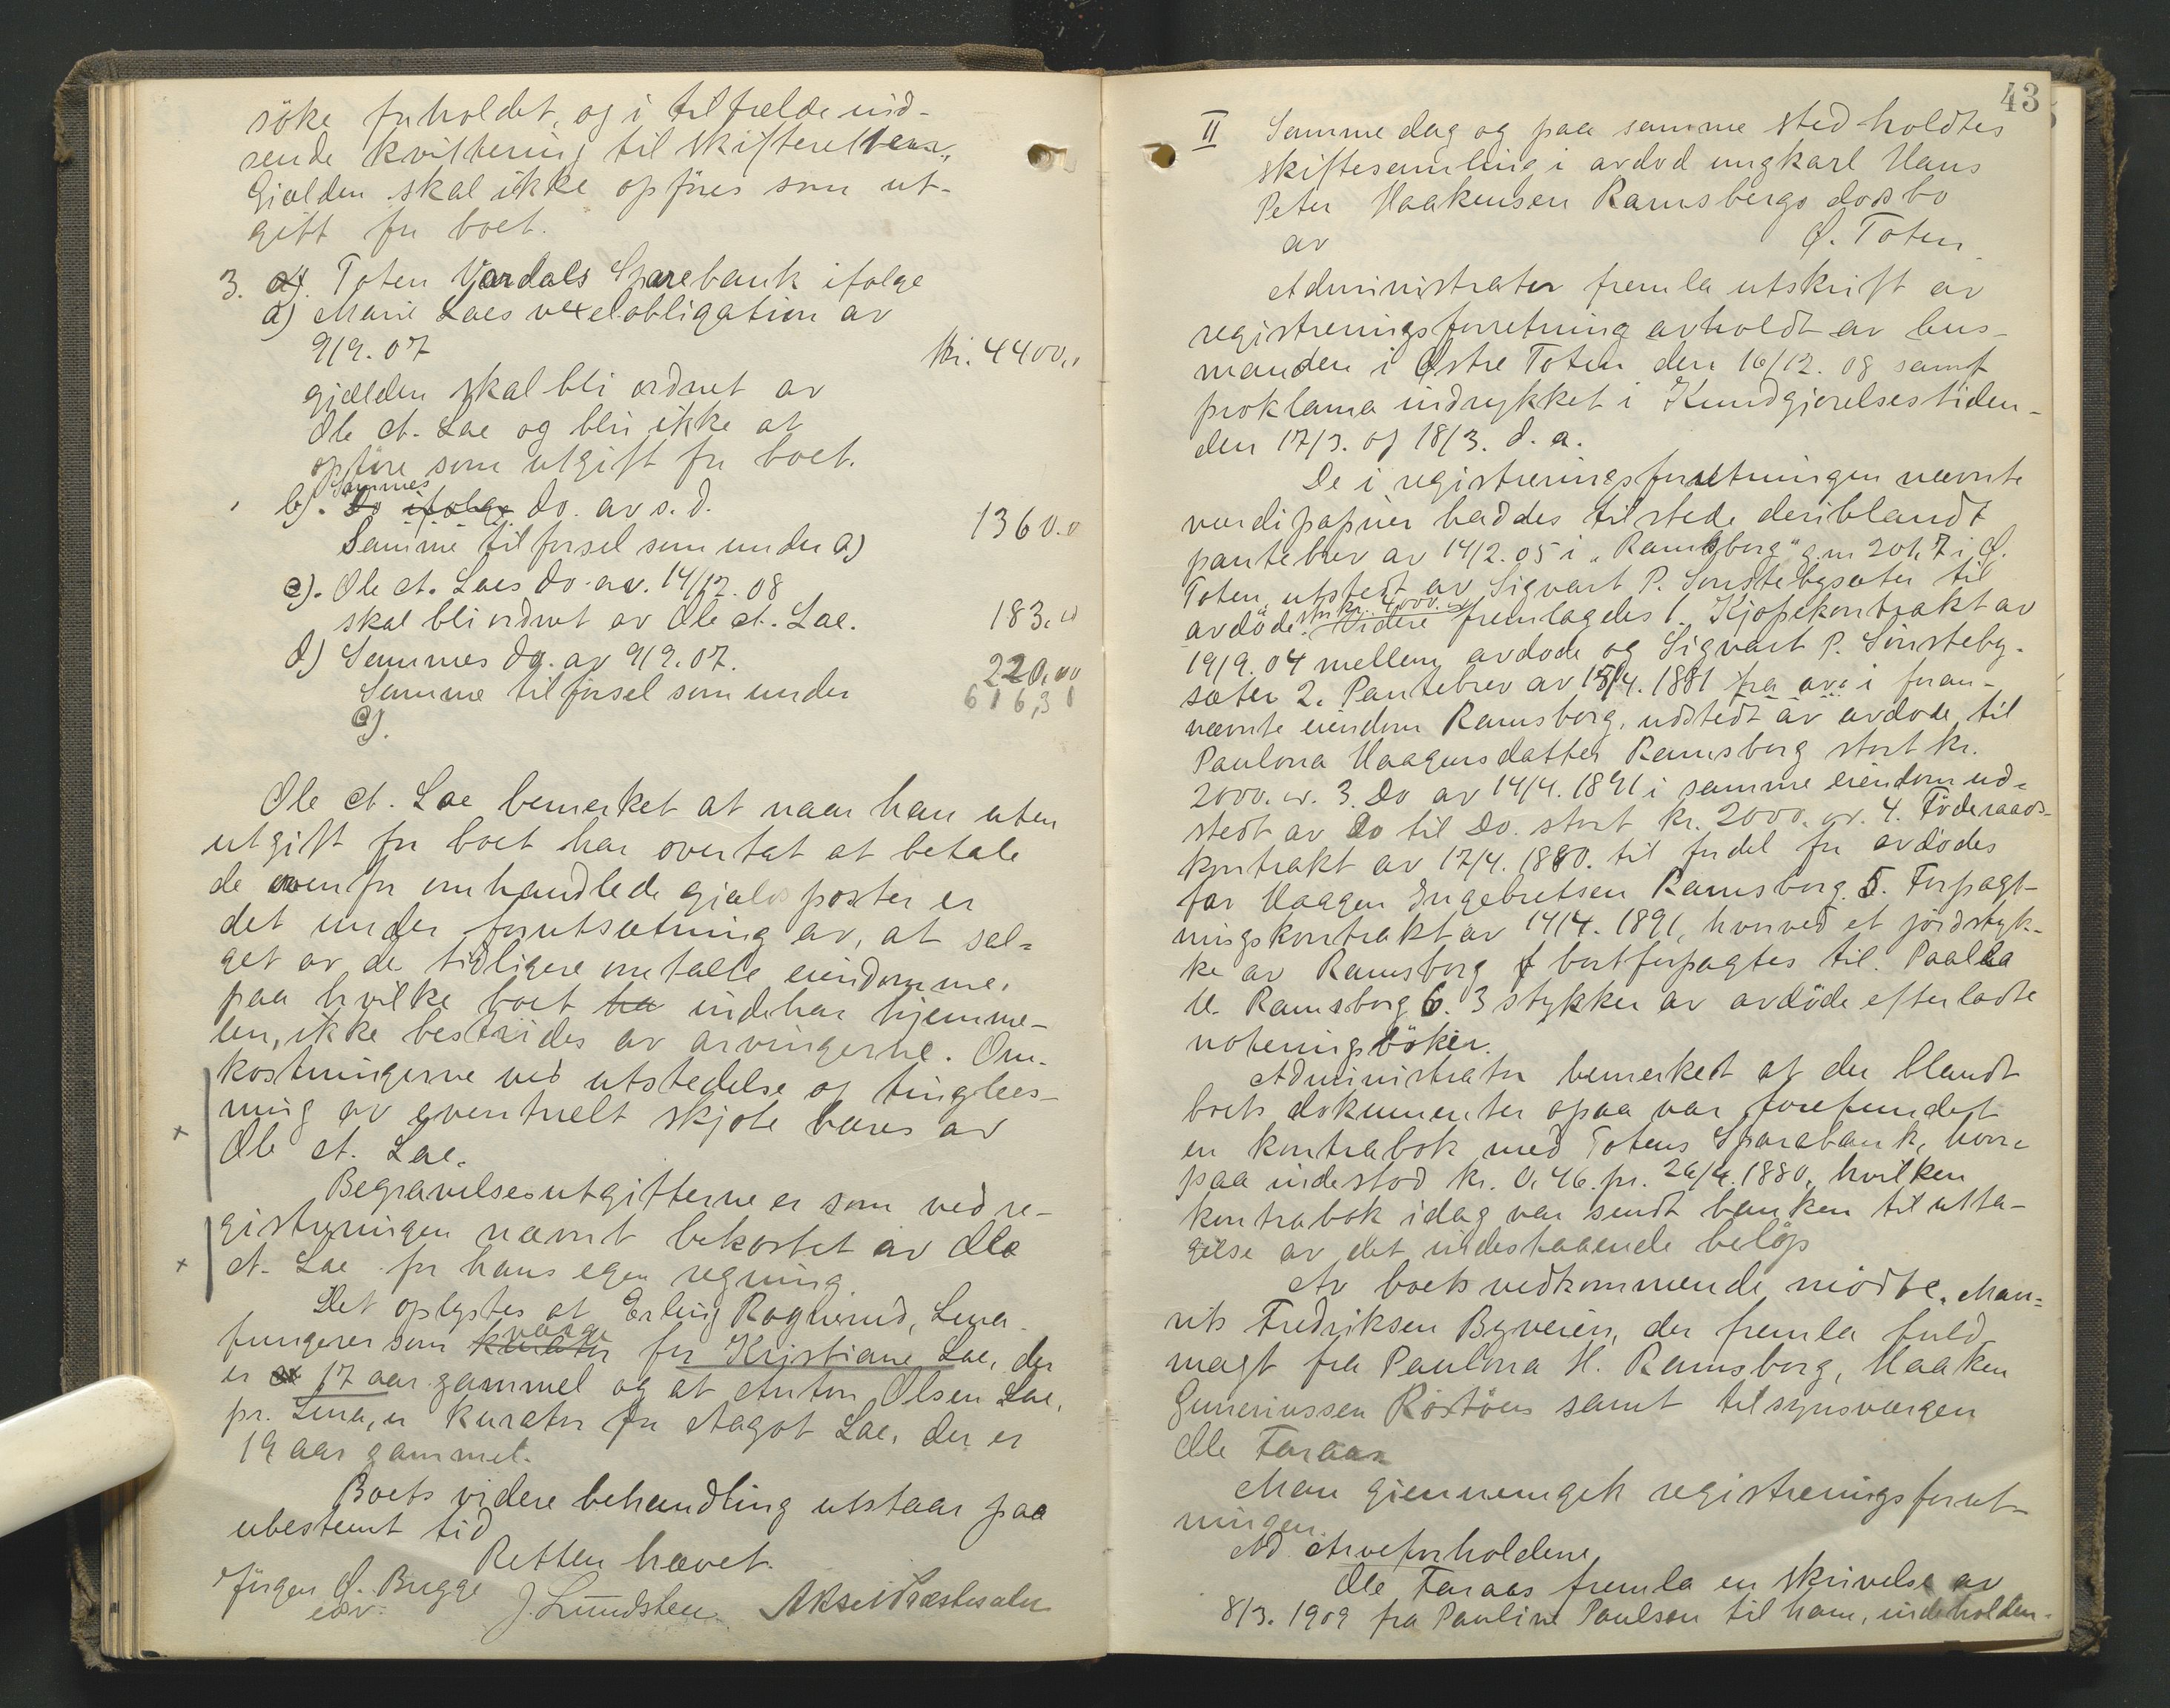 söke forholdet, og i tilfælde ind-
sende kvittering til skifteretten.
Gjælden skal ikke opföres som ut-
gift for boet.
3. a). Toten Vardals Sparebank ifølge
a) Marie Laes vexelobligation av
9/9. 07 kr. 4400,,
gjælden skal bli ordnet av
Ole A. Lae og blir ikke at
opföre som utgift for boet.
b). Sammes Do ifølge do. av s. d. 1360.0
Samme tilførsel som under a)
c). Ole A. Laes do. av. 14/12. 08
skal bli ordnet av Ole A. Lae. 183,00
d) Sammes do. av 9/9. 07. 220,00
Samme tilførsel som under 616,31
c).
Ole A. Lae bemerket at naar han uten
utgift for boet har overtat at betale
de ovenfor omhandlede gjældsposter er
det under forutsætning av, at sal-
get av de tidligere omtalte eiendomme,
paa hvilke boet ha indehar hjemme-
len, ikke bestrides av arvingerne. Om-
kostningerne ved utstedelse og tinglæs-
ning av eventuelt skjøte bæres av
Ole A. Lae.
Begravelsesutgifterne er som ved re-
gistreringen nævnt bekostet av Ole
A. Lae for hans egen regning
Det oplystes at Erling Roglierud, Lena
fungerer som kurator værge for Kristiane Lae, der
er 17 aar gammel og at Anton Olsen Lae,
pr. Lena, er kurator for Aagot Lae, der er
19 aar gammel.
Boets videre behandling utstaar paa
ubestemt tid
Retten hævet.
Jörgen Ø. Bugge
edv. J. Lundsten Aksel Præstesæter
43
II Samme dag og paa samme sted holdtes
skiftesamling i avdød ungkarl Hans
Peter Haakensen Ramsbergs dødsbo
av Ø. Toten
Administrator fremla utskrift av
registreringsforretning avholdt av lens-
manden i Østre Toten den 16/12. 08 samt
proklama indrykket i Kundgjørelsestiden-
den 17/3. og 18/3. d. a.
De i registreringsforretningen nævnte
værdipapirer haddes tilstede deriblandt
pantebrev av 14/2. 05 i „Ramsborg" g.n 201, 7 i Ø.
Toten, utstedt av Sigvart P. Sönstebysæter til
avdöde. stor kr. 4000.00 Videre fremlagdes 1. Kjøpekontrakt av
19/9. 04 mellem avdøde og Sigvart P. Sönsteby-
sæter 2. Pantebrev av 15/4. 1881 fra avd i foran-
nævnte eiendom Ramsborg, udstedt av avdøde til
Paulona Haagensdatter Ramsborg stort kr.
2000. 00. 3. Do av 14/4. 1891 i samme eiendom ud-
stedt av Do til Do. stort kr. 2000. 00. 4. Föderaads-
kontrakt av 17/4. 1880. til fordel for avdødes
far Haagen Ingebretsen Ramsborg. 5. Forpagt-
ningskontrakt av 14/4. 1891, hvorved et jordstyk-
ke av Ramsborg bortforpagtes til. Paalea
H. Ramsborg 6. 3 stykker av avdöde efterladte
noteringsböker.
Administrator bemerket at der blandt
boets dokumenter ogsaa var forefundet
en kontrabok med Totens Sparebank, hvor-
paa indestod kr. 0,46. pr. 26/4. 1880, hvilken
kontrabok idag var sendt banken til utta-
gelse av det indestaaende beløp
Av boets vedkommende mödte. Mau-
rits Fredriksen Byveien, der fremla fuld-
magt fra Paulona H. Ramsborg, Haaken
Gunerinssen Röstöen samt tilsynsværgen
Ole Faraas
Man gjennemgik registreringsforret-
ningen.
Ad. Arveforholdene.
Ole Faraas fremla en skrivelse av
8/3. 1909 fra Pauline Paulsen til ham, indeholden-